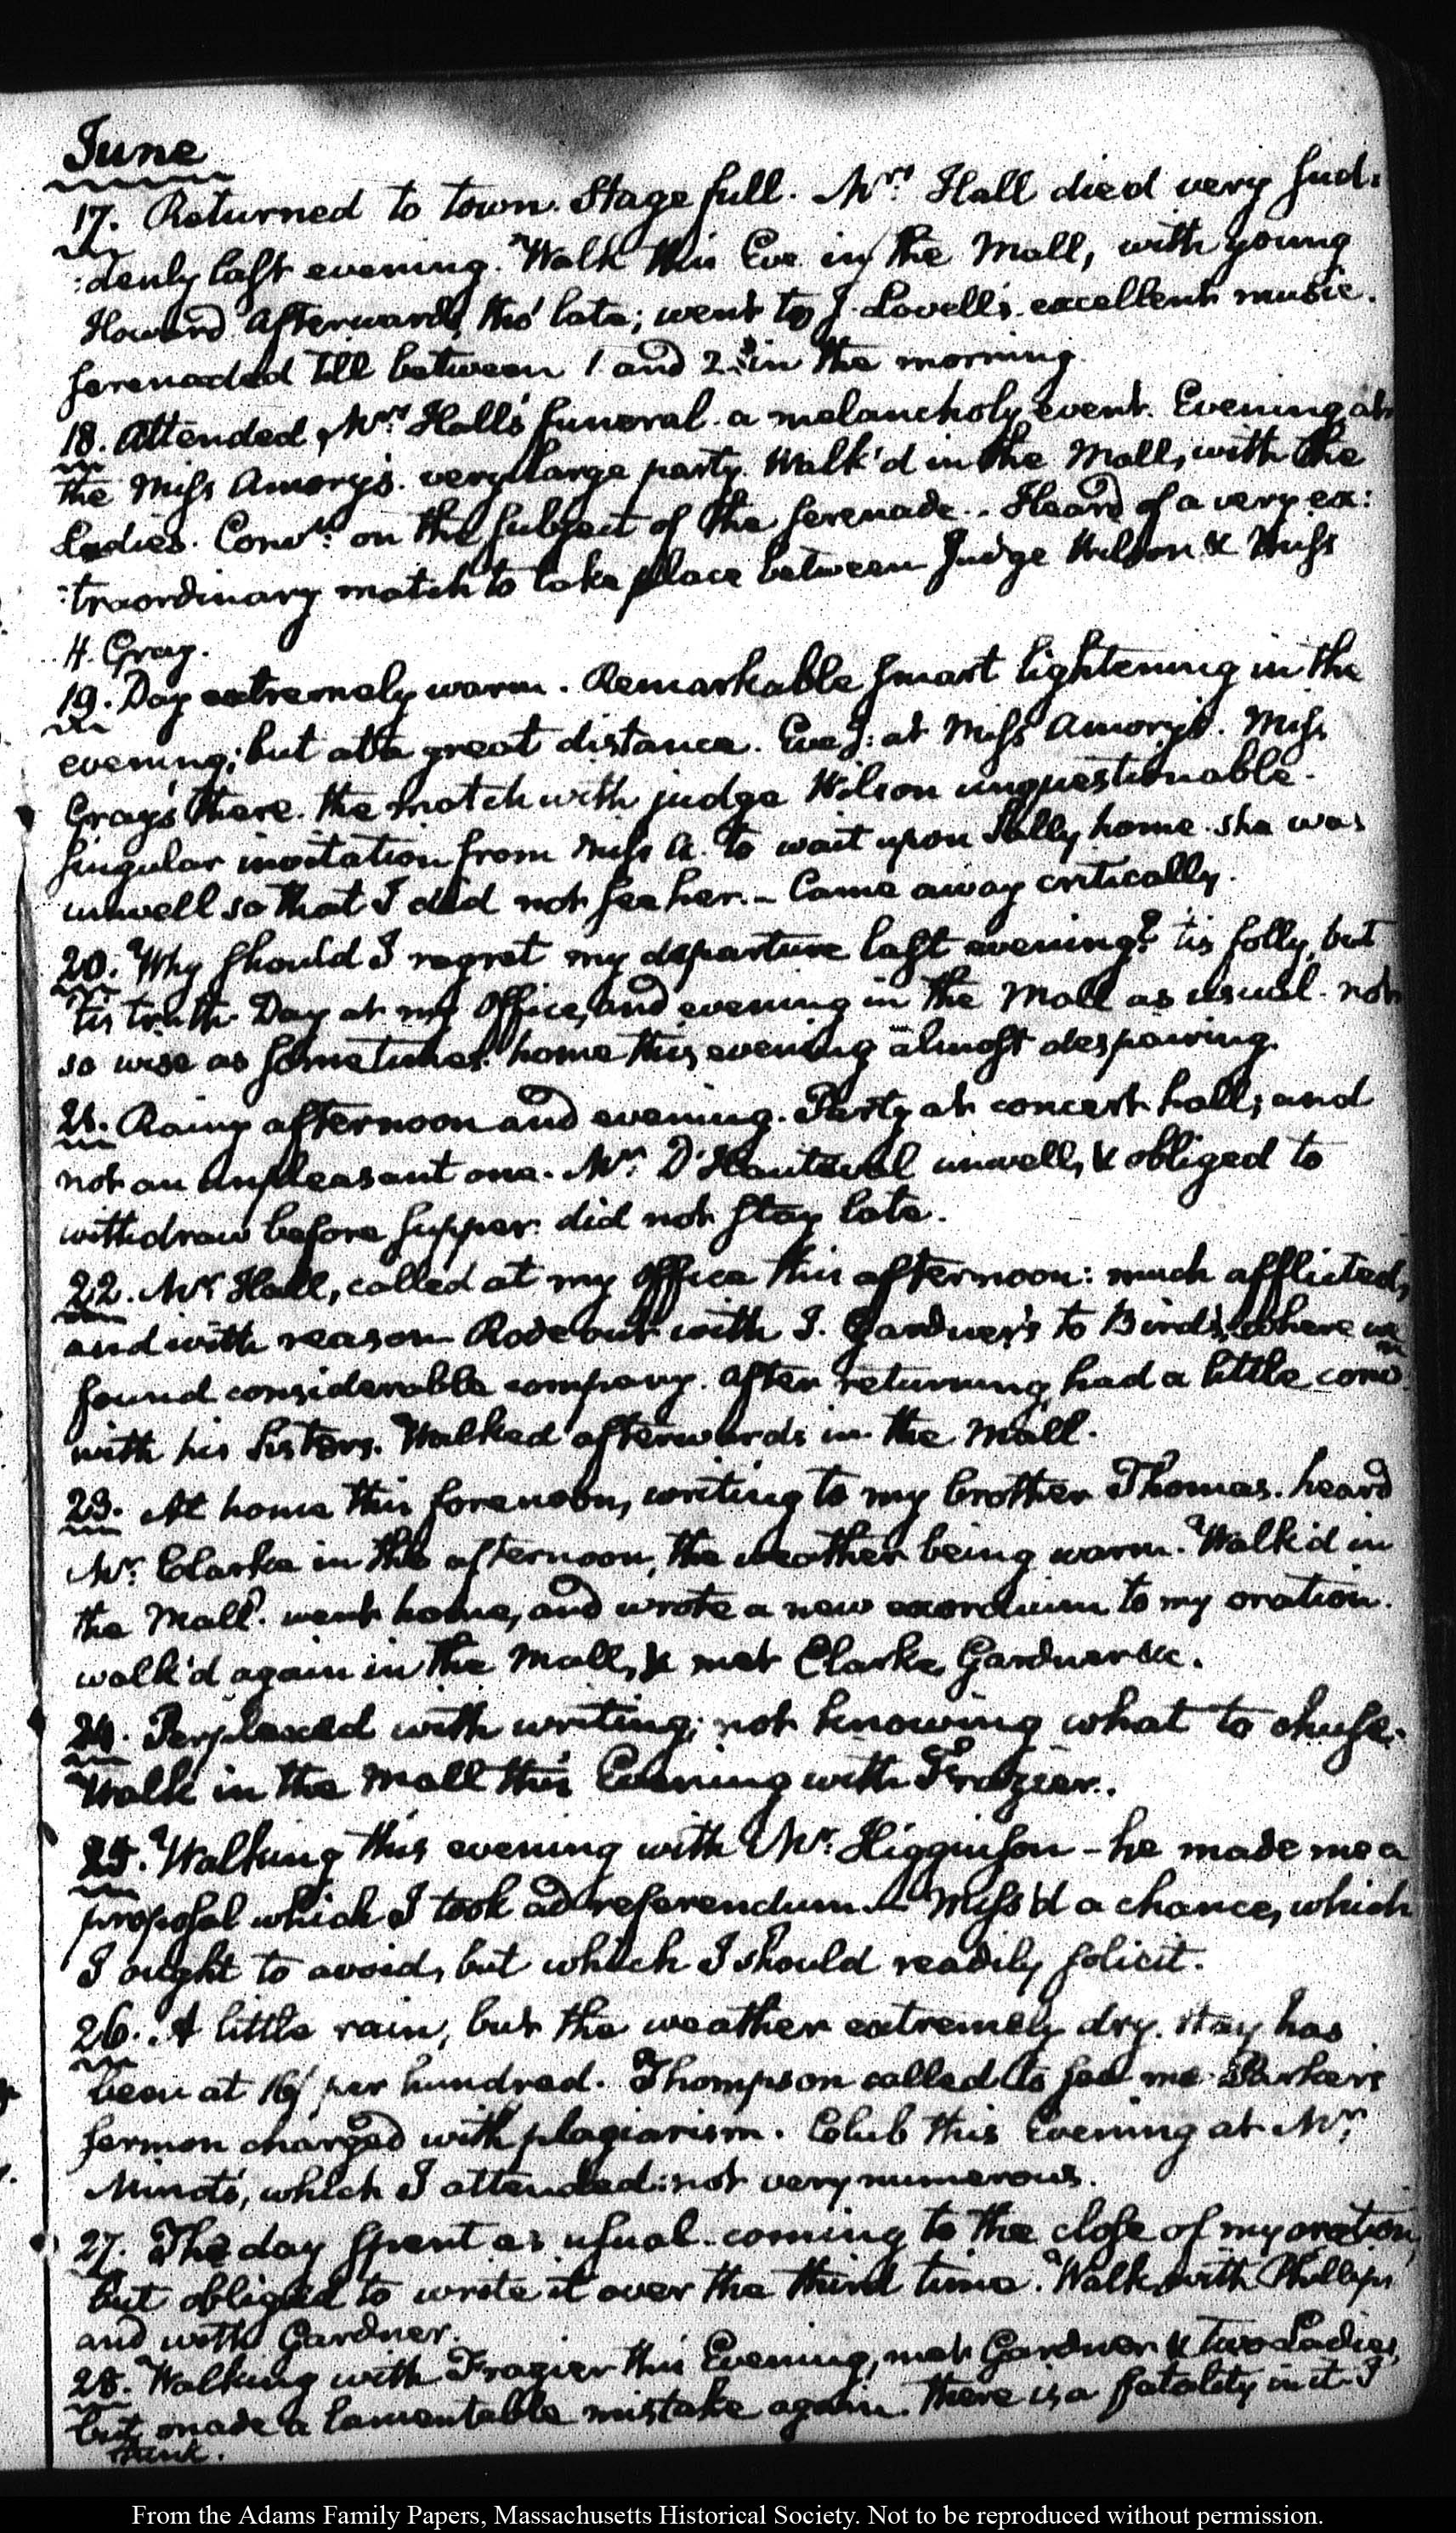 June
17. Returned to town. Stage full. Mrs. Hall died very sud:
:denly last evening. Walk this Eve in the Mall, with young
Howard afterwards, tho' late; went to J. Lovell's. excellent music.
serenaded till between 1 and 2 in the morning.
18. Attended Mrs. Hall's funeral. a melancholy event. Evening at
the Miss Amory's. very large party. Walk'd in the Mall, with the
Ladies. Convn. on the subject of the serenade.. Heard of a very ex:
:traordinary match to take place between Judge Wilson & Miss
H. Gray.
19. Day extremely warm. Remarkable smart lightening in the
evening; but at a great distance. Eveg: at Miss Amory's. Miss
Gray's there. the match with judge Wilson unquestionable.
singular invitation from Miss A. to wait upon Sally home. she was
unwell so that I did not see her. – Came away critically.
20. Why should I regret my departure last evening? tis folly, but
'tis truth. Day at my Office, and evening in the Mall as usual. not
so wise as sometimes. home this evening almost despairing.
21. Rainy afternoon and evening. Party at concert hall; and
not an unpleasant one. Mrs. D'Hauteval unwell, & obliged to
withdraw before supper. did not stay late.
22. Mr Hall, called at my Office this afternoon: much afflicted,
and with reason. Rode out with J. Gardner's to Bird's, where we
found considerable company. After returning, had a little convn.
with his Sisters. Walked afterwards in the Mall.
23. At home this forenoon, writing to my brother Thomas. heard
Mr. Clarke in the afternoon, the weather being warm. Walk'd in
the Mall. went home, and wrote a new exordium to my oration.
walk'd again in the Mall, & met Clarke, Gardner &c.
24. Perplexed with writing; not knowing what to chuse.
Walk in the Mall this Evening with Frazier..
25. Walking this evening with Mr. Higginson – he made me a
proposal which I took ad referendum. – Miss'd a chance, which
I ought to avoid, but which I should readily solicit.
26. A little rain, but the weather extremely dry. Hay has
been at 16/ per hundred. Thompson called to see me. Parker's
sermon charged with plagiarism. Club this Evening at Mr.
Minot's, which I attended: not very numerous.
27. The day spent as usual. coming to the close of my oration,
but obliged to write it over the third time. Walk with Phillips
and with Gardner.
28. Walking with Frazier this Evening, met Gardner & two Ladies,
but made a lamentable mistake again. There is a fatality in it I
think.
From the Adams Family Papers, Massachusetts Historical Society. Not to be reproduced without permission.